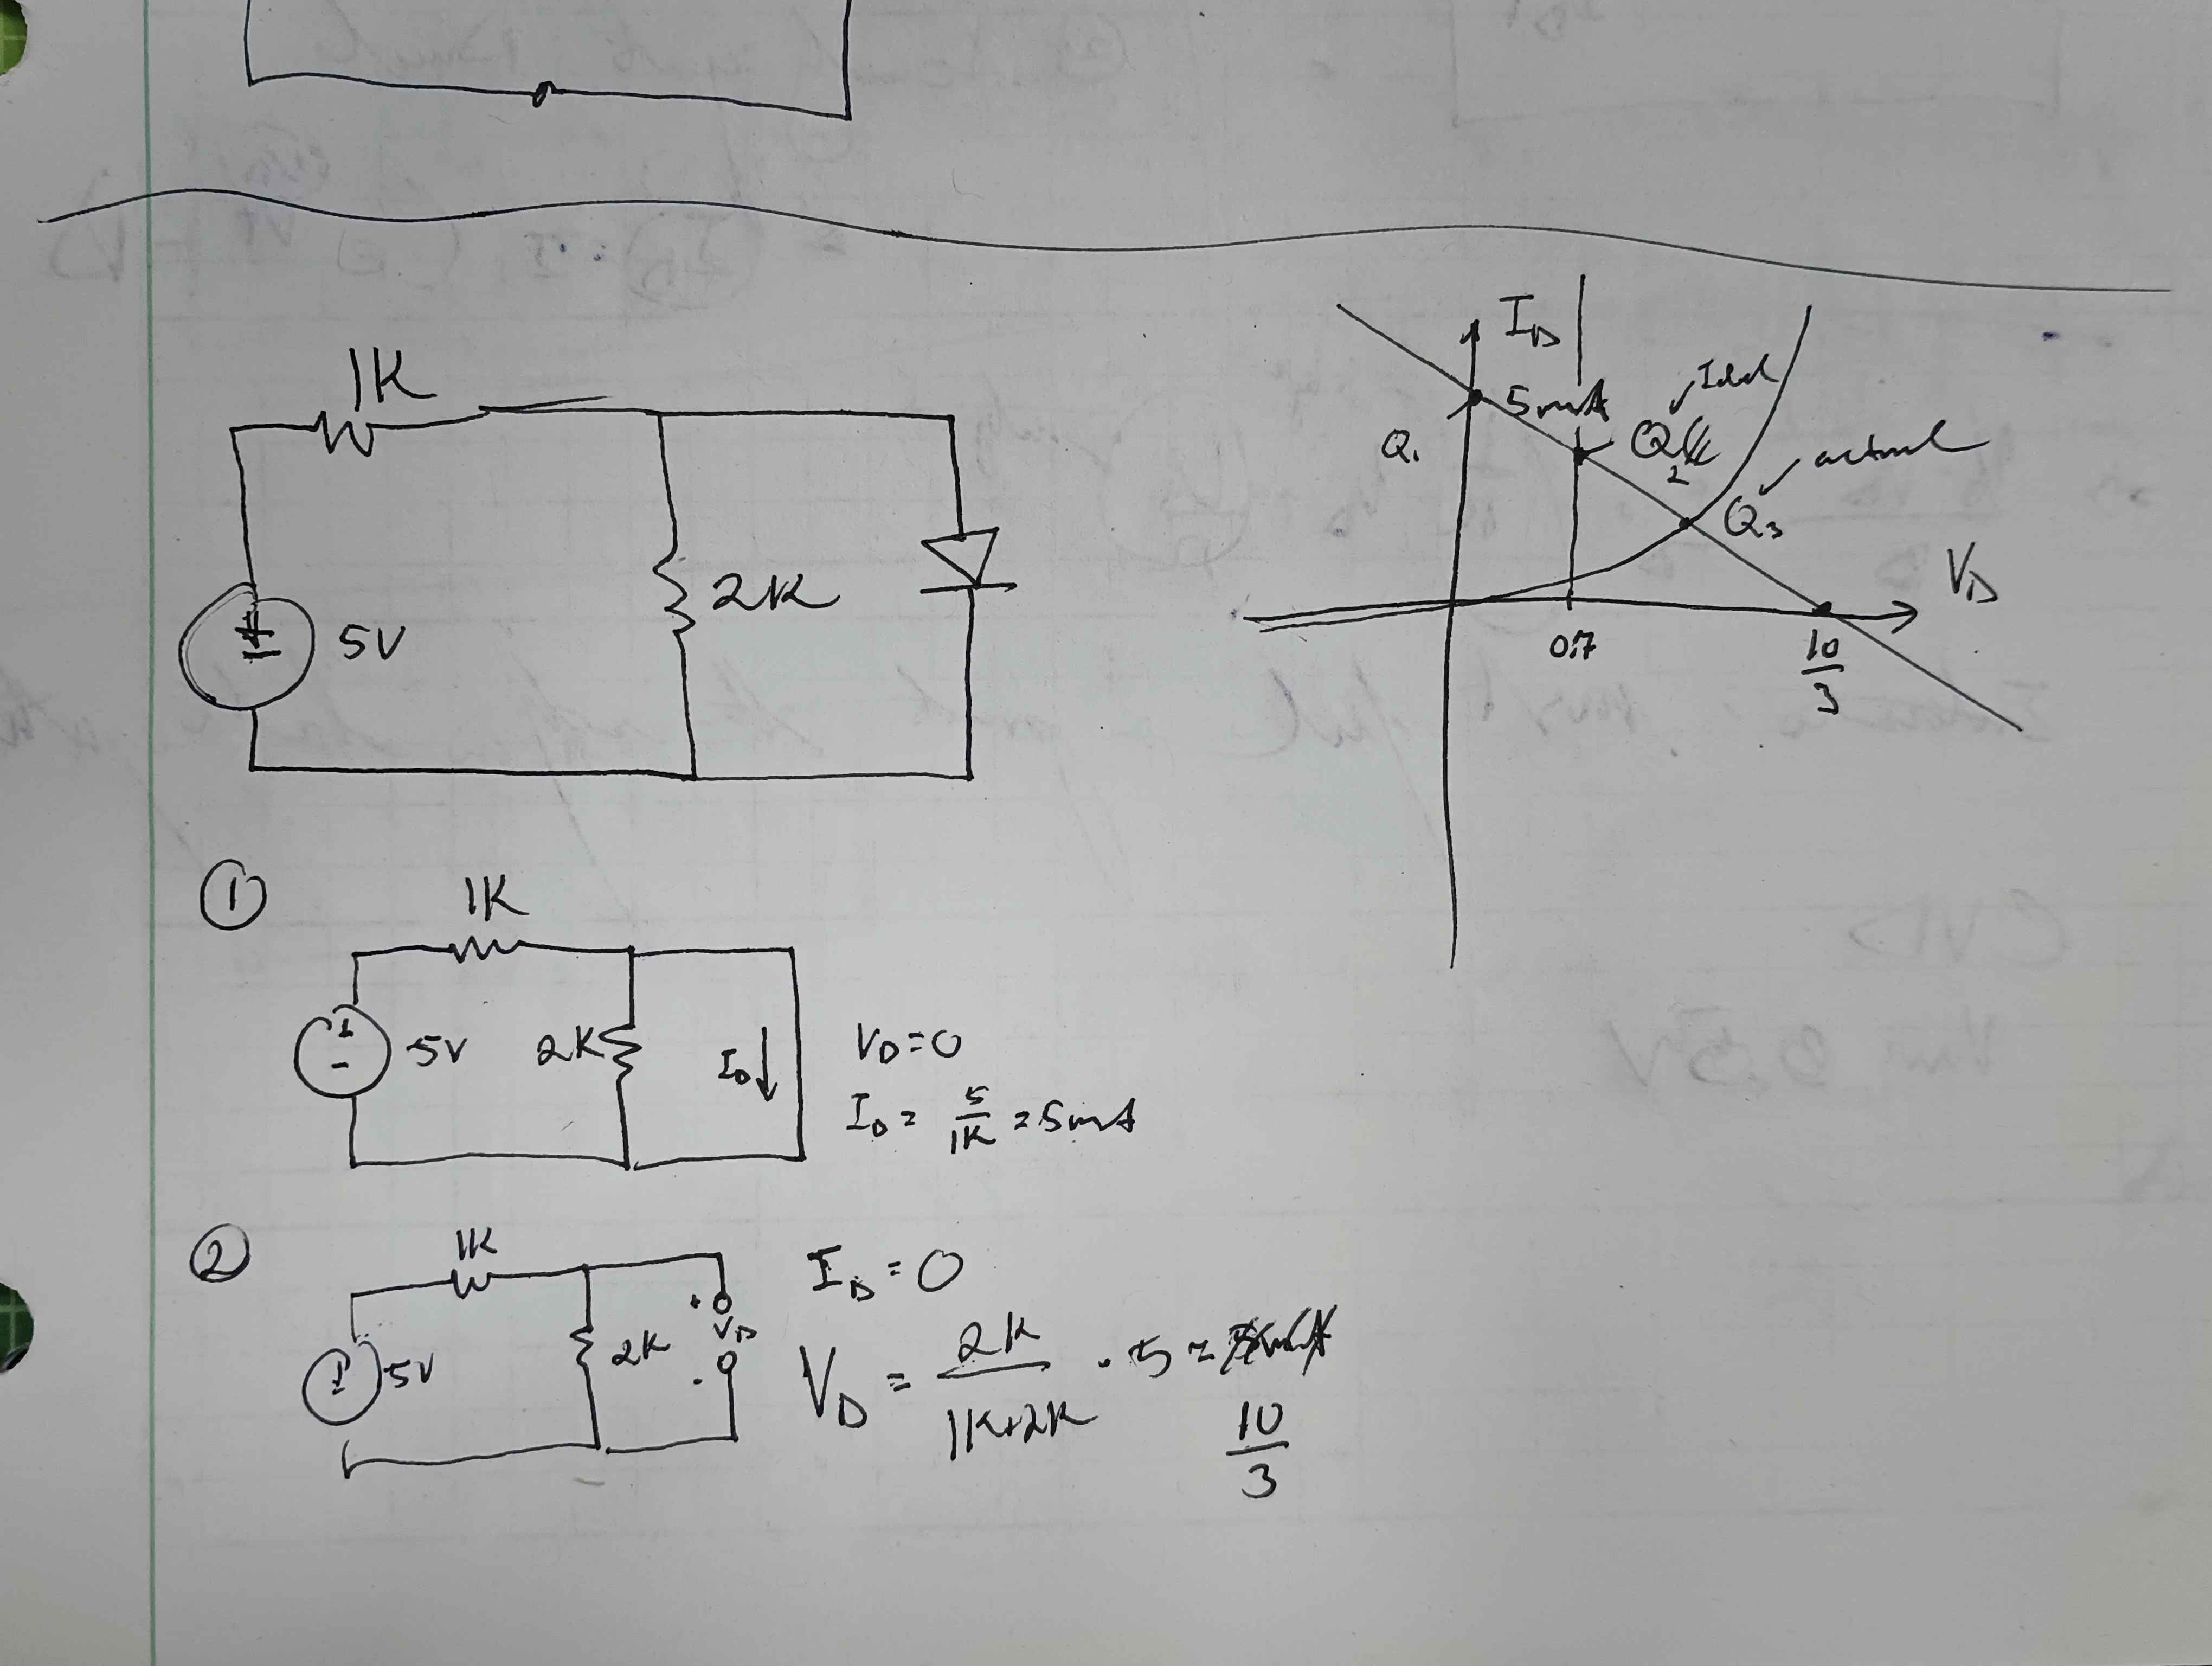 1K
5V
2K
I_D
5mA
Q₁
Q₂
Q₃
actual
V_D
0.7
10
3
①
1K
5V
2K
I_D ↓
V_D = 0
I_D = 5/1K = 5mA
②
1K
5V
2K
+
V_D
-
I_D = 0
V_D = 2K/(1K+2K) · 5 =
10
3